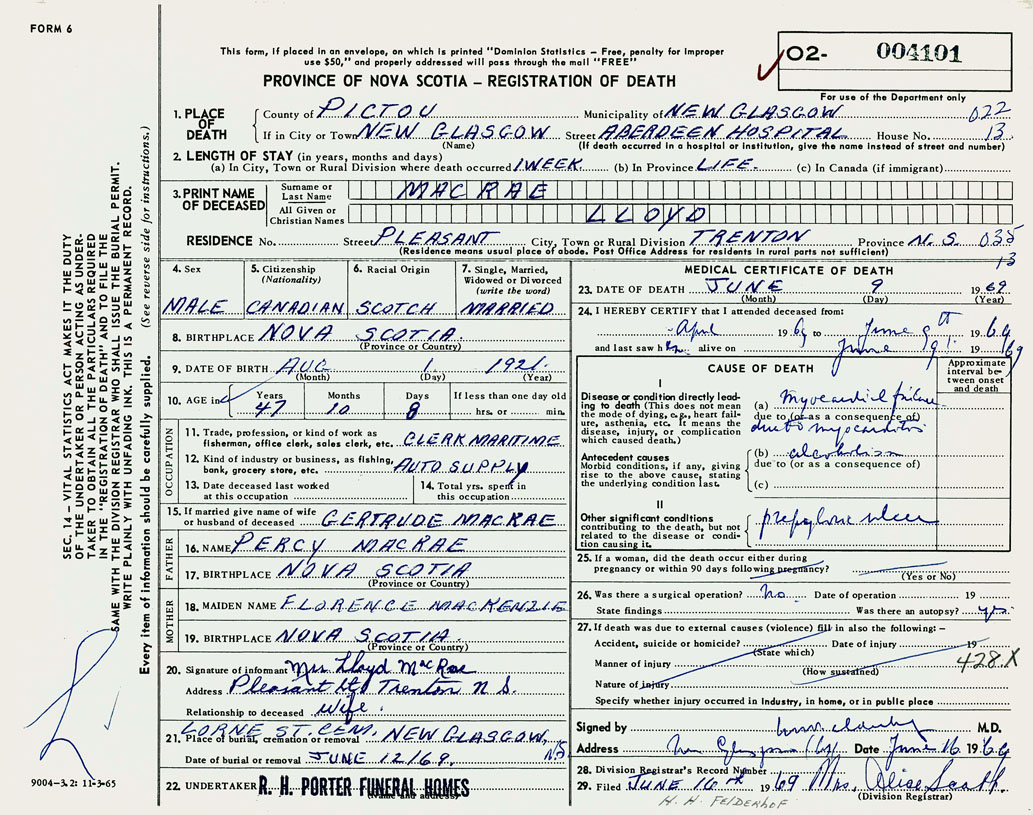 FORM 6
This form, if placed in an envelope, on which is printed "Dominion Statistics – Free, penalty for improper
use $50," and properly addressed will pass through the mail "FREE"
O2- 004101
For use of the Department only
PROVINCE OF NOVA SCOTIA – REGISTRATION OF DEATH
1. PLACE OF DEATH
County of PICTOU Municipality of NEW GLASGOW 022
If in City or Town NEW GLASGOW Street ABERDEEN HOSPITAL House No. 13
(Name) (If death occurred in a hospital or institution, give the name instead of street and number)
2. LENGTH OF STAY (in years, months and days)
(a) In City, Town or Rural Division where death occurred 1 WEEK (b) In Province LIFE. (c) In Canada (if immigrant)
3. PRINT NAME OF DECEASED
Surname or Last Name MACRAE
All Given or Christian Names LLOYD
RESIDENCE No. Street PLEASANT City, Town or Rural Division TRENTON Province N.S. 035
(Residence means usual place of abode. Post Office Address for residents in rural parts not sufficient) 13
4. Sex MALE
5. Citizenship (Nationality) CANADIAN
6. Racial Origin SCOTCH
7. Single, Married, Widowed or Divorced (write the word) MARRIED
8. BIRTHPLACE NOVA SCOTIA.
(Province or Country)
9. DATE OF BIRTH AUG 1. 1921.
(Month) (Day) (Year)
10. AGE in Years 47 Months 10 Days 8 If less than one day old hrs. or min.
OCCUPATION
11. Trade, profession, or kind of work as fisherman, office clerk, sales clerk, etc. CLERK MARITIME
12. Kind of industry or business, as fishing, bank, grocery store, etc. AUTO SUPPLY
13. Date deceased last worked at this occupation
14. Total yrs. spent in this occupation
15. If married give name of wife or husband of deceased GERTRUDE MACRAE
FATHER
16. NAME PERCY MACRAE
17. BIRTHPLACE NOVA SCOTIA
(Province or Country)
MOTHER
18. MAIDEN NAME FLORENCE MACKENZIE
19. BIRTHPLACE NOVA SCOTIA.
(Province or Country)
20. Signature of informant Mrs Lloyd MacRae
Address Pleasant St, Trenton N S.
Relationship to deceased wife.
LORNE ST. CEM. NEW GLASGOW, N.S.
21. Place of burial, cremation or removal
Date of burial or removal JUNE 12/69.
22. UNDERTAKER R. H. PORTER FUNERAL HOMES
(Name and address)
MEDICAL CERTIFICATE OF DEATH
23. DATE OF DEATH JUNE 9 1969
(Month) (Day) (Year)
24. I HEREBY CERTIFY that I attended deceased from:
April 1969 to June 9th 1969
and last saw him alive on June 9 1969
CAUSE OF DEATH
Approximate interval between onset and death
I
Disease or condition directly leading to death (This does not mean the mode of dying, e.g., heart failure, asthenia, etc. It means the disease, injury, or complication which caused death.)
(a) Myocardial failure
due to (or as a consequence of)
due to myocarditis
Antecedent causes
Morbid conditions, if any, giving rise to the above cause, stating the underlying condition last.
(b) alcoholism
due to (or as a consequence of)
(c)
II
Other significant conditions
contributing to the death, but not related to the disease or condition causing it.
prepyloric ulcer
25. If a woman, did the death occur either during
pregnancy or within 90 days following pregnancy?
(Yes or No)
26. Was there a surgical operation? No Date of operation 19
State findings Was there an autopsy? yes.
27. If death was due to external causes (violence) fill in also the following: –
Accident, suicide or homicide? Date of injury 19
(State which)
Manner of injury 428.X
(How sustained)
Nature of injury
Specify whether injury occurred in industry, in home, or in public place
Signed by M.D.
Address New Glasgow Date June 16 1969
28. Division Registrar's Record Number
29. Filed JUNE 16th 1969 Mrs. Alice Scott.
(Division Registrar)
H. H. FELDERHOF
SEC. 14 – VITAL STATISTICS ACT MAKES IT THE DUTY
OF THE UNDERTAKER OR PERSON ACTING AS UNDER-
TAKER TO OBTAIN ALL THE PARTICULARS REQUIRED
IN THE "REGISTRATION OF DEATH" AND TO FILE THE
SAME WITH THE DIVISION REGISTRAR WHO SHALL ISSUE THE BURIAL PERMIT.
WRITE PLAINLY WITH UNFADING INK. THIS IS A PERMANENT RECORD.
Every item of information should be carefully supplied. (See reverse side for instructions.)
9004–3.2: 11-3-65